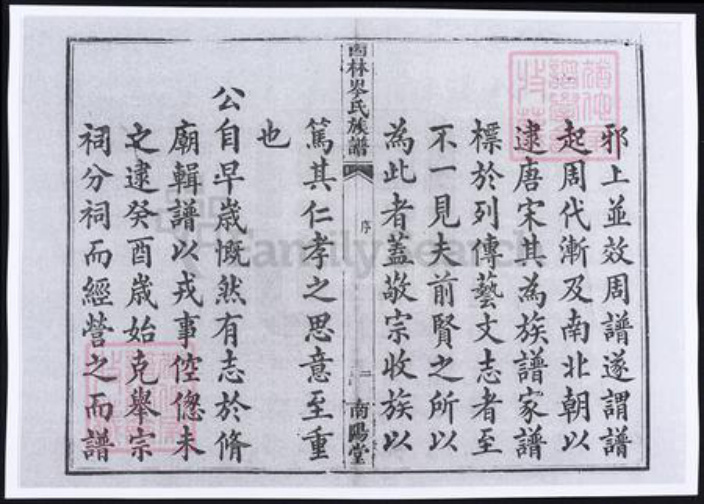 邪上並效周譜遂謂譜
起周代漸及南北朝以
逮唐宋其為族譜家譜
標於列傳藝文志者至
不一見夫前賢之所以
為此者蓋敬宗收族以
西林岑氏族譜
序
二
南陽堂
篤其仁孝之思意至重
也
公自早歲慨然有志於脩
廟輯譜以戎事倥偬未
之逮癸酉歲始克舉宗
祠分祠而經營之而譜
FamilySearch